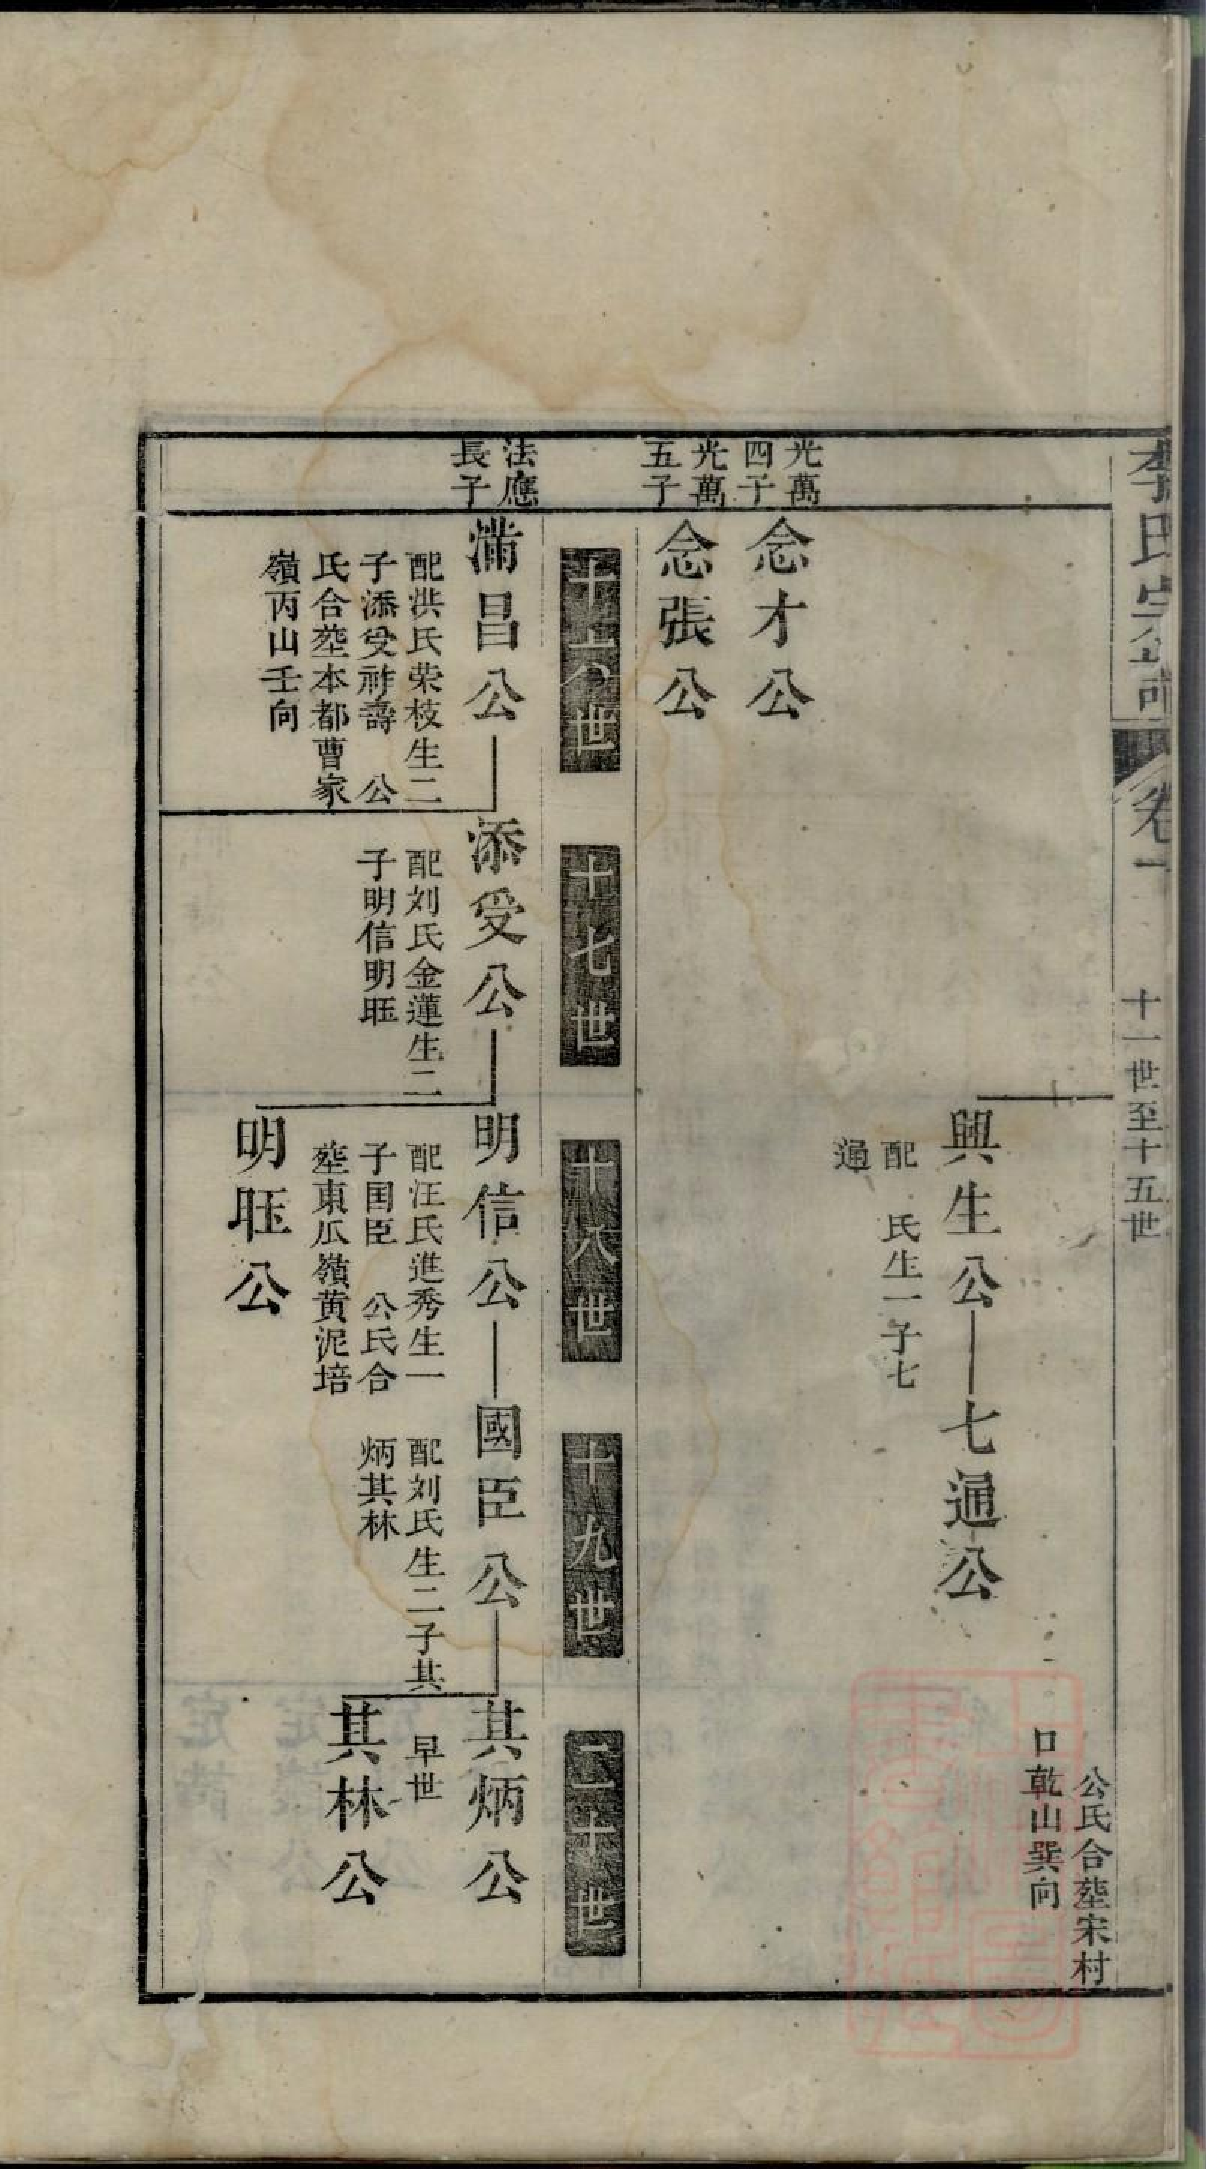 李氏宗譜
卷一
十一世至十五世
公氏合塟宋村
口乾山巽向
興生公
配 氏生一子七
通
七通公
光萬
四子
念才公
光萬
五子
念張公
十六世
十七世
十八世
十九世
二十世
法應
長子
滿昌公
配洪氏荣枝生二
子添受祚壽 公
氏合塟本都曹家
嶺丙山壬向
添受公
配刘氏金蓮生二
子明信明𤤴
明信公
配汪氏進秀生一
子囯臣 公氏合
塟東瓜嶺黄泥培
國臣公
配刘氏生二子其
炳其林
其炳公
早世
其林公
明𤤴公